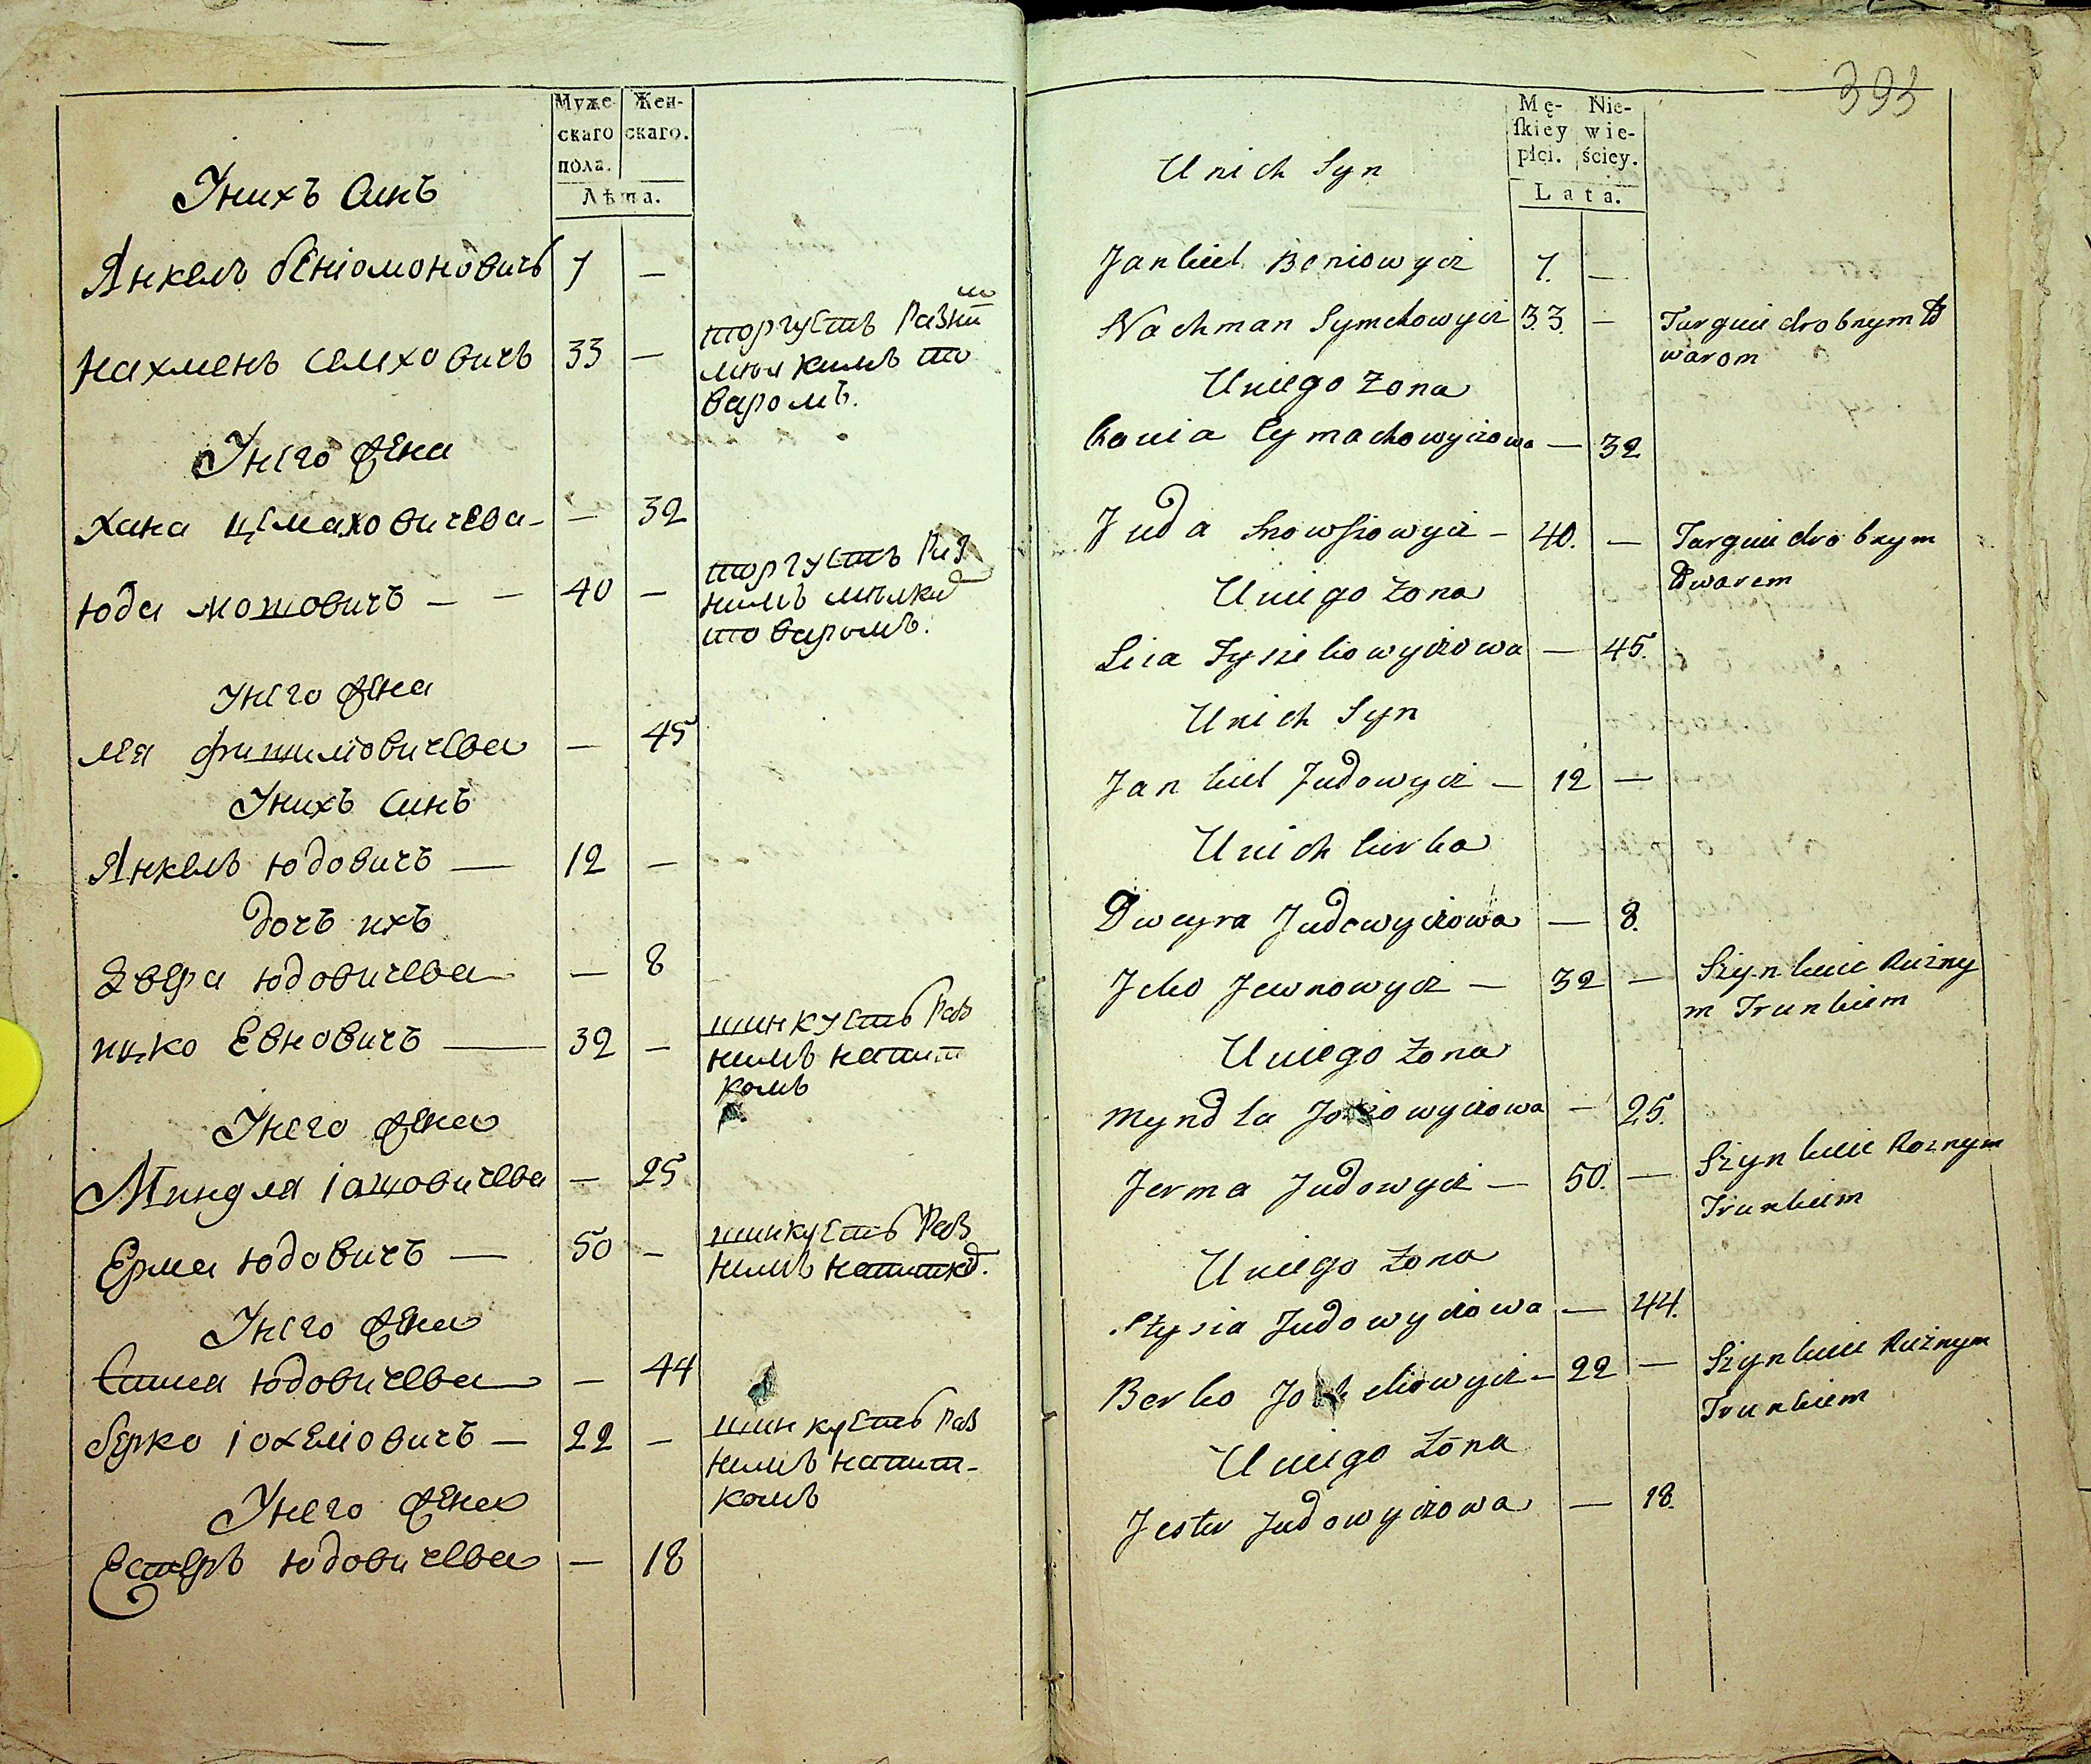 Муже-
скаго
пола.
Жен-
скаго.
Лѣта.
Унихъ синъ
Янкель беніомоновичъ 7 —
нахменъ симховичъ 33 — торгуетъ разнимъ
мелкимъ то
варомъ.
Унего жена
хана цемаховичева — — 32
юда мошовичъ — — 40 — торгуетъ раз
нимъ мелким
товаромъ.
Унего жена
лея фишиліовичева — 45
Унихъ синъ
Янкель юдовичъ — 12 —
дочъ ихъ
двера юдовичева — 8
ицко Евновичъ — 32 — шинкуетъ раз
нимъ напит
комъ
Унего жена
Миндля іошовичева — 25
Ерма юдовичъ — 50 — шинкуетъ раз
нимъ напитко.
Унего жена
юдовичева — 44
берко іохеліовичъ — 22 — шинкуетъ раз
нимъ напит-
комъ
Унего жена
Естеръ юдовичева — 18
393
Mę-
ſkiey
płci.
Nie-
wie-
ściey.
Lata.
Unich Syn
Jankiel Beniowycz 7. —
Nachman Symchowycz 33. — Targuie drobnym to
warom
Uniego Żona
Cymachowyczowa — 32
Juda Mowszowycz — 40. — Targuie drobnym
towarem
Uniego Żona
Leia Fyszelowyczowa — 45.
Unich Syn
Jankiel Judowycz — 12 —
Unich Curka
Dweyra Judowyczowa — 8.
Icko Jewnowycz — 32 — Szynkuie Rużny
m Trunkiem
Uniego Żona
Myndla Joszowyczowa — 25.
Jerma Judowycz — 50. — Szynkuie Rożnym
Trunkiem
Uniego Żona
Judowyczowa — 44.
Berko Jochelowycz — 22 — Szynkuie Rużnym
Trunkiem
Uniego Żona
Jester Judowyczowa — 18.